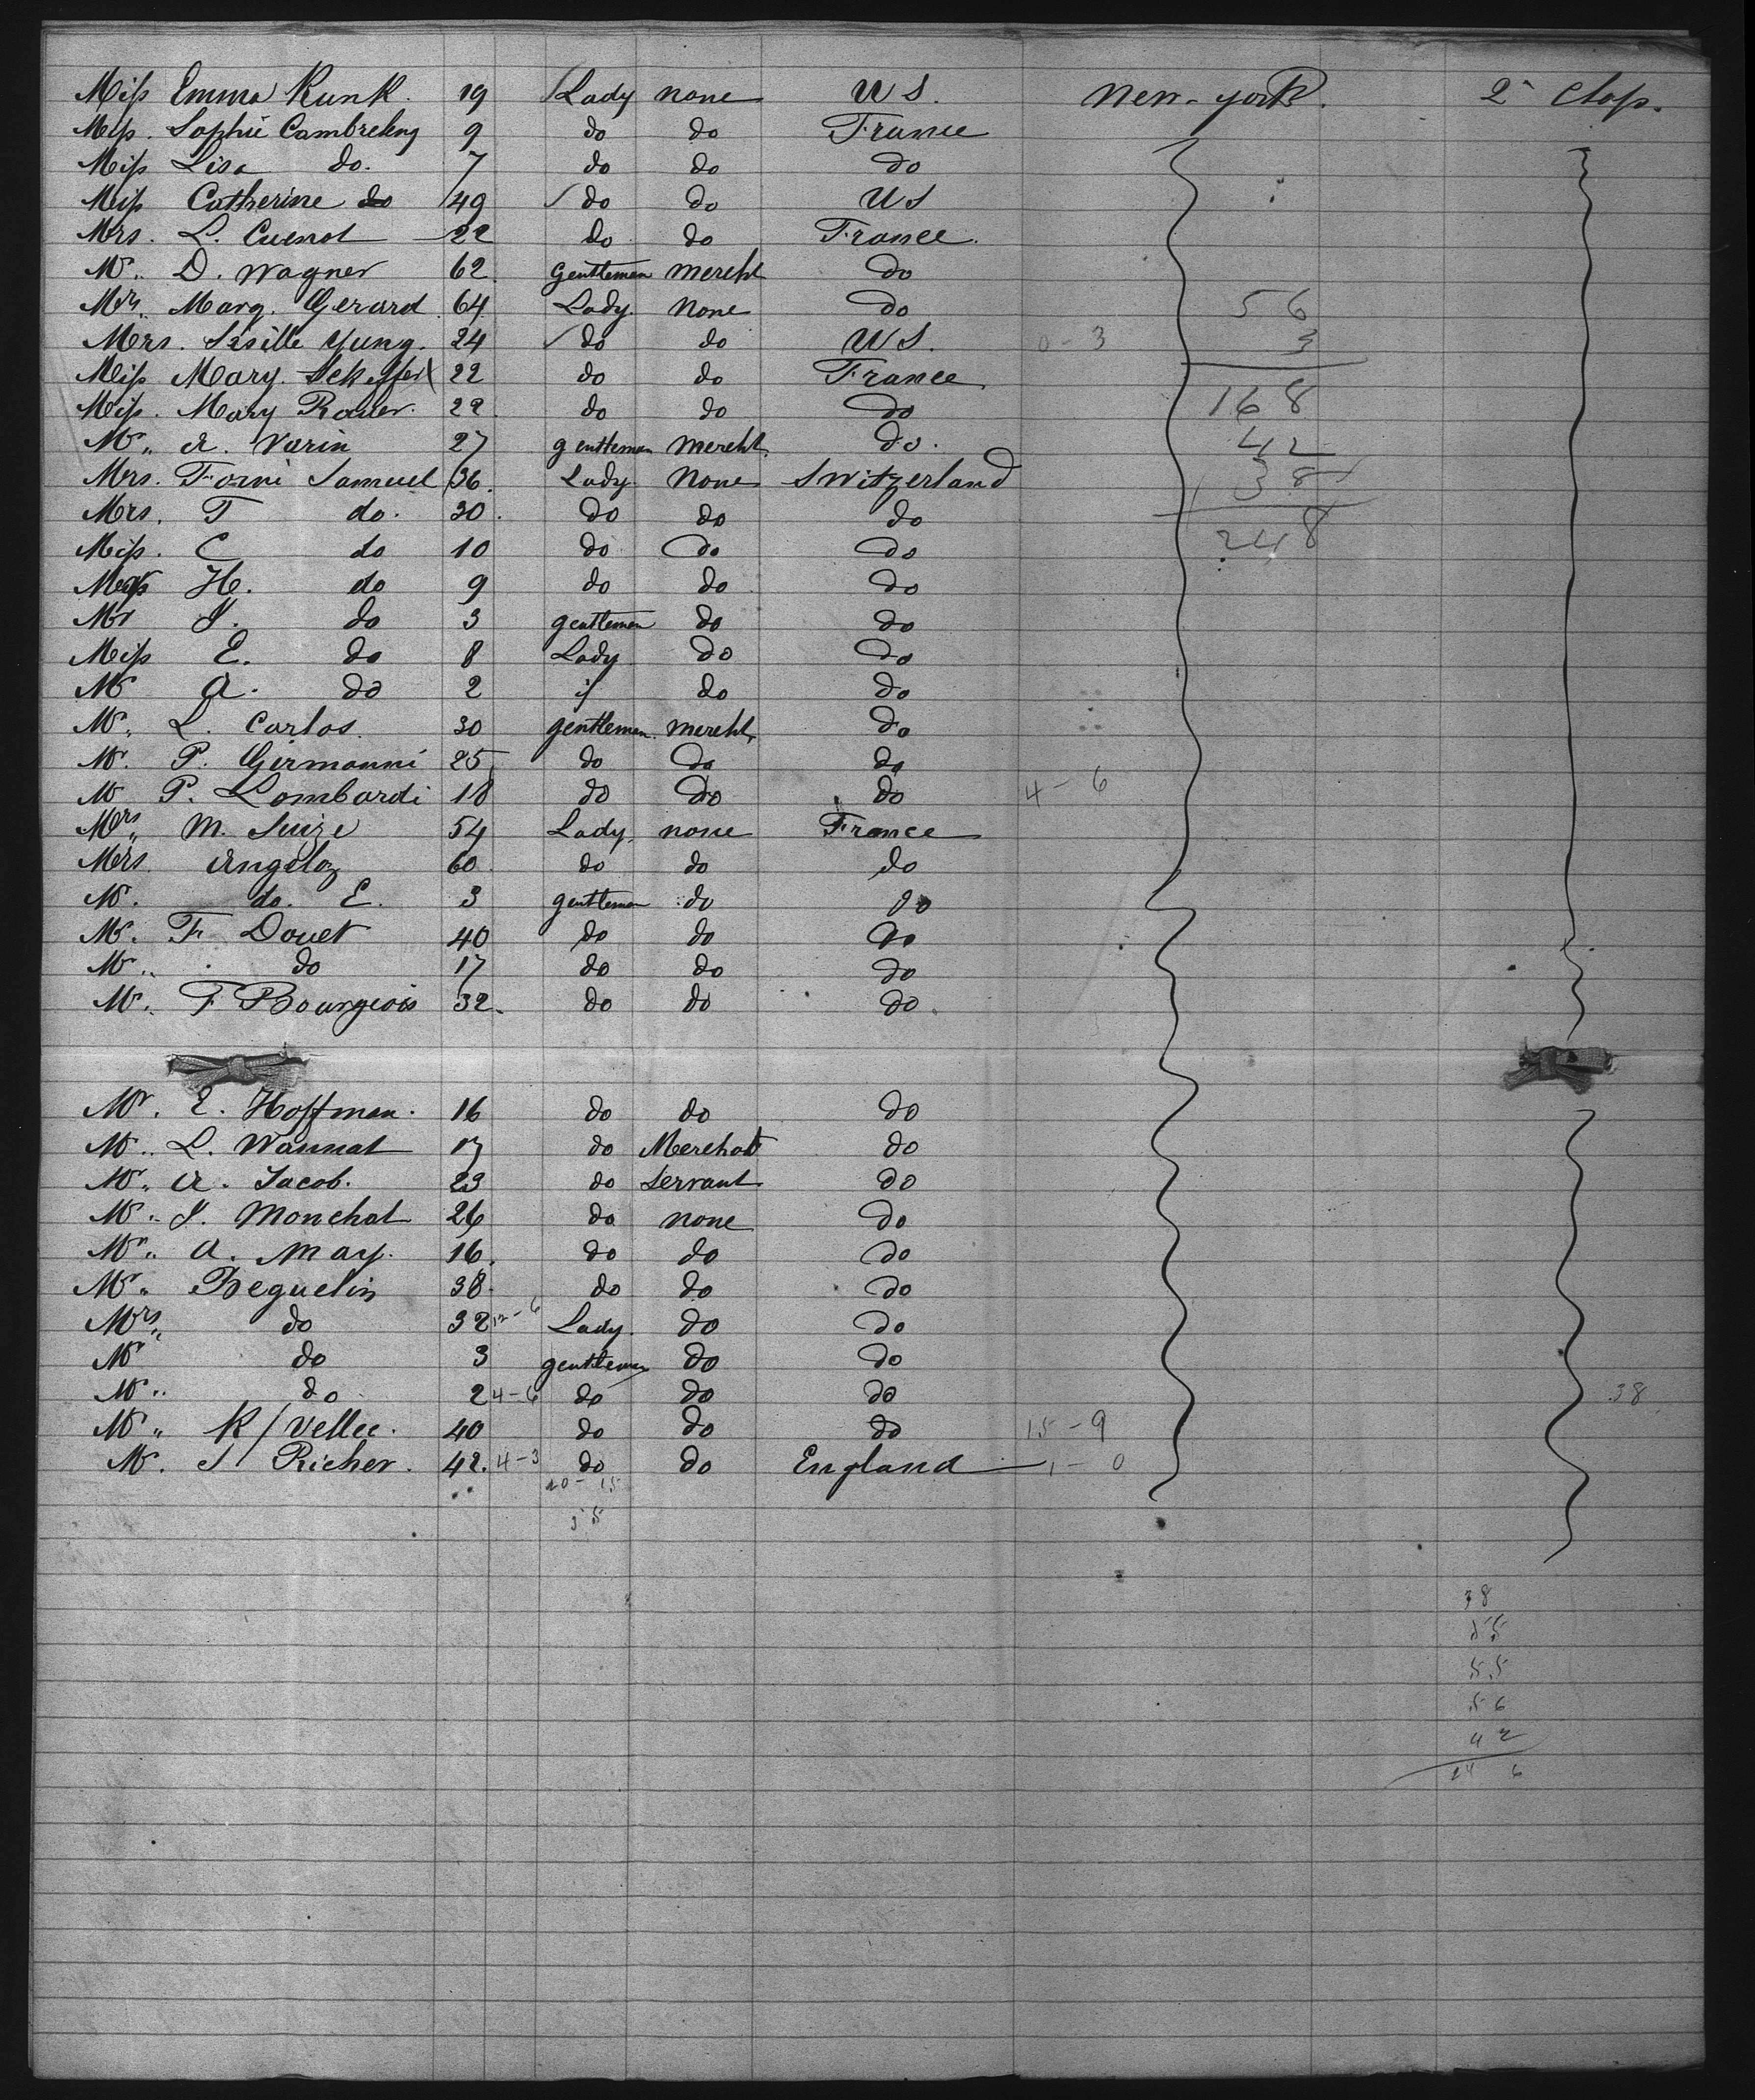 Miss Emma Kunk. 19 Lady none US. New-york. 2d Class.
Miss. Sophie Cambreleng 9 do do France
Miss Lisa do. 7 do do do
Miss Catherine do 49 do do US
Mrs. L. Cuenot 22 do do France.
Mr. D. Wagner 62 gentleman mercht do
Mrs. Marg. Gerard. 64 Lady. none do 56
Mrs. Sisille Yung. 24 do do US. 0-3 3
Miss Mary. 22 do do France.
Miss. Mary Rouler. 22. do do do 168
Mr. A. Varin 27 gentleman mercht. do. 42
Mrs. Forni Samuel 36. Lady none Switzerland 38
Mrs. T do. 30. do do do 248
Miss. C do 10 do do do
H. do 9 do do do
Mr J. do 3 gentleman do do
Miss E. do 8 Lady do do
Mr A. do 2 do do
Mr. L. Carlos. 30 gentleman. mercht. do
Mr. P. Girmanni 25 do do do
Mr P. Lombardi 18 do do do 4-6
Mrs. M. Suize 54 Lady. none France
Mrs. Angeloz 60. do do do
Mr. do. E. 3 gentleman do do
Mr. F Douet 40 do do do
Mr. do 17 do do do
Mr. F Bourgeois 32. do do do.
Mr. E. Hoffman. 16 do do do
Mr. L. Wannat 17 do Merchant do
Mr. A. Jacob. 23 do Servant do
Mr. J. Monchat 26 do none do
Mr. A. May. 16. do do do
Mr. Beguelin 38. do do do
Mrs. do 32 12-6 Lady. do do
Mr do 3 gentleman do do
Mr. do 2 4-6 do do do 38
Mr. K/Vellec. 40 do do do 15-9
Mr. S Richer. 42. 4-3 do do England 1-0
20-15
35
38
55
55
56
42
24 6